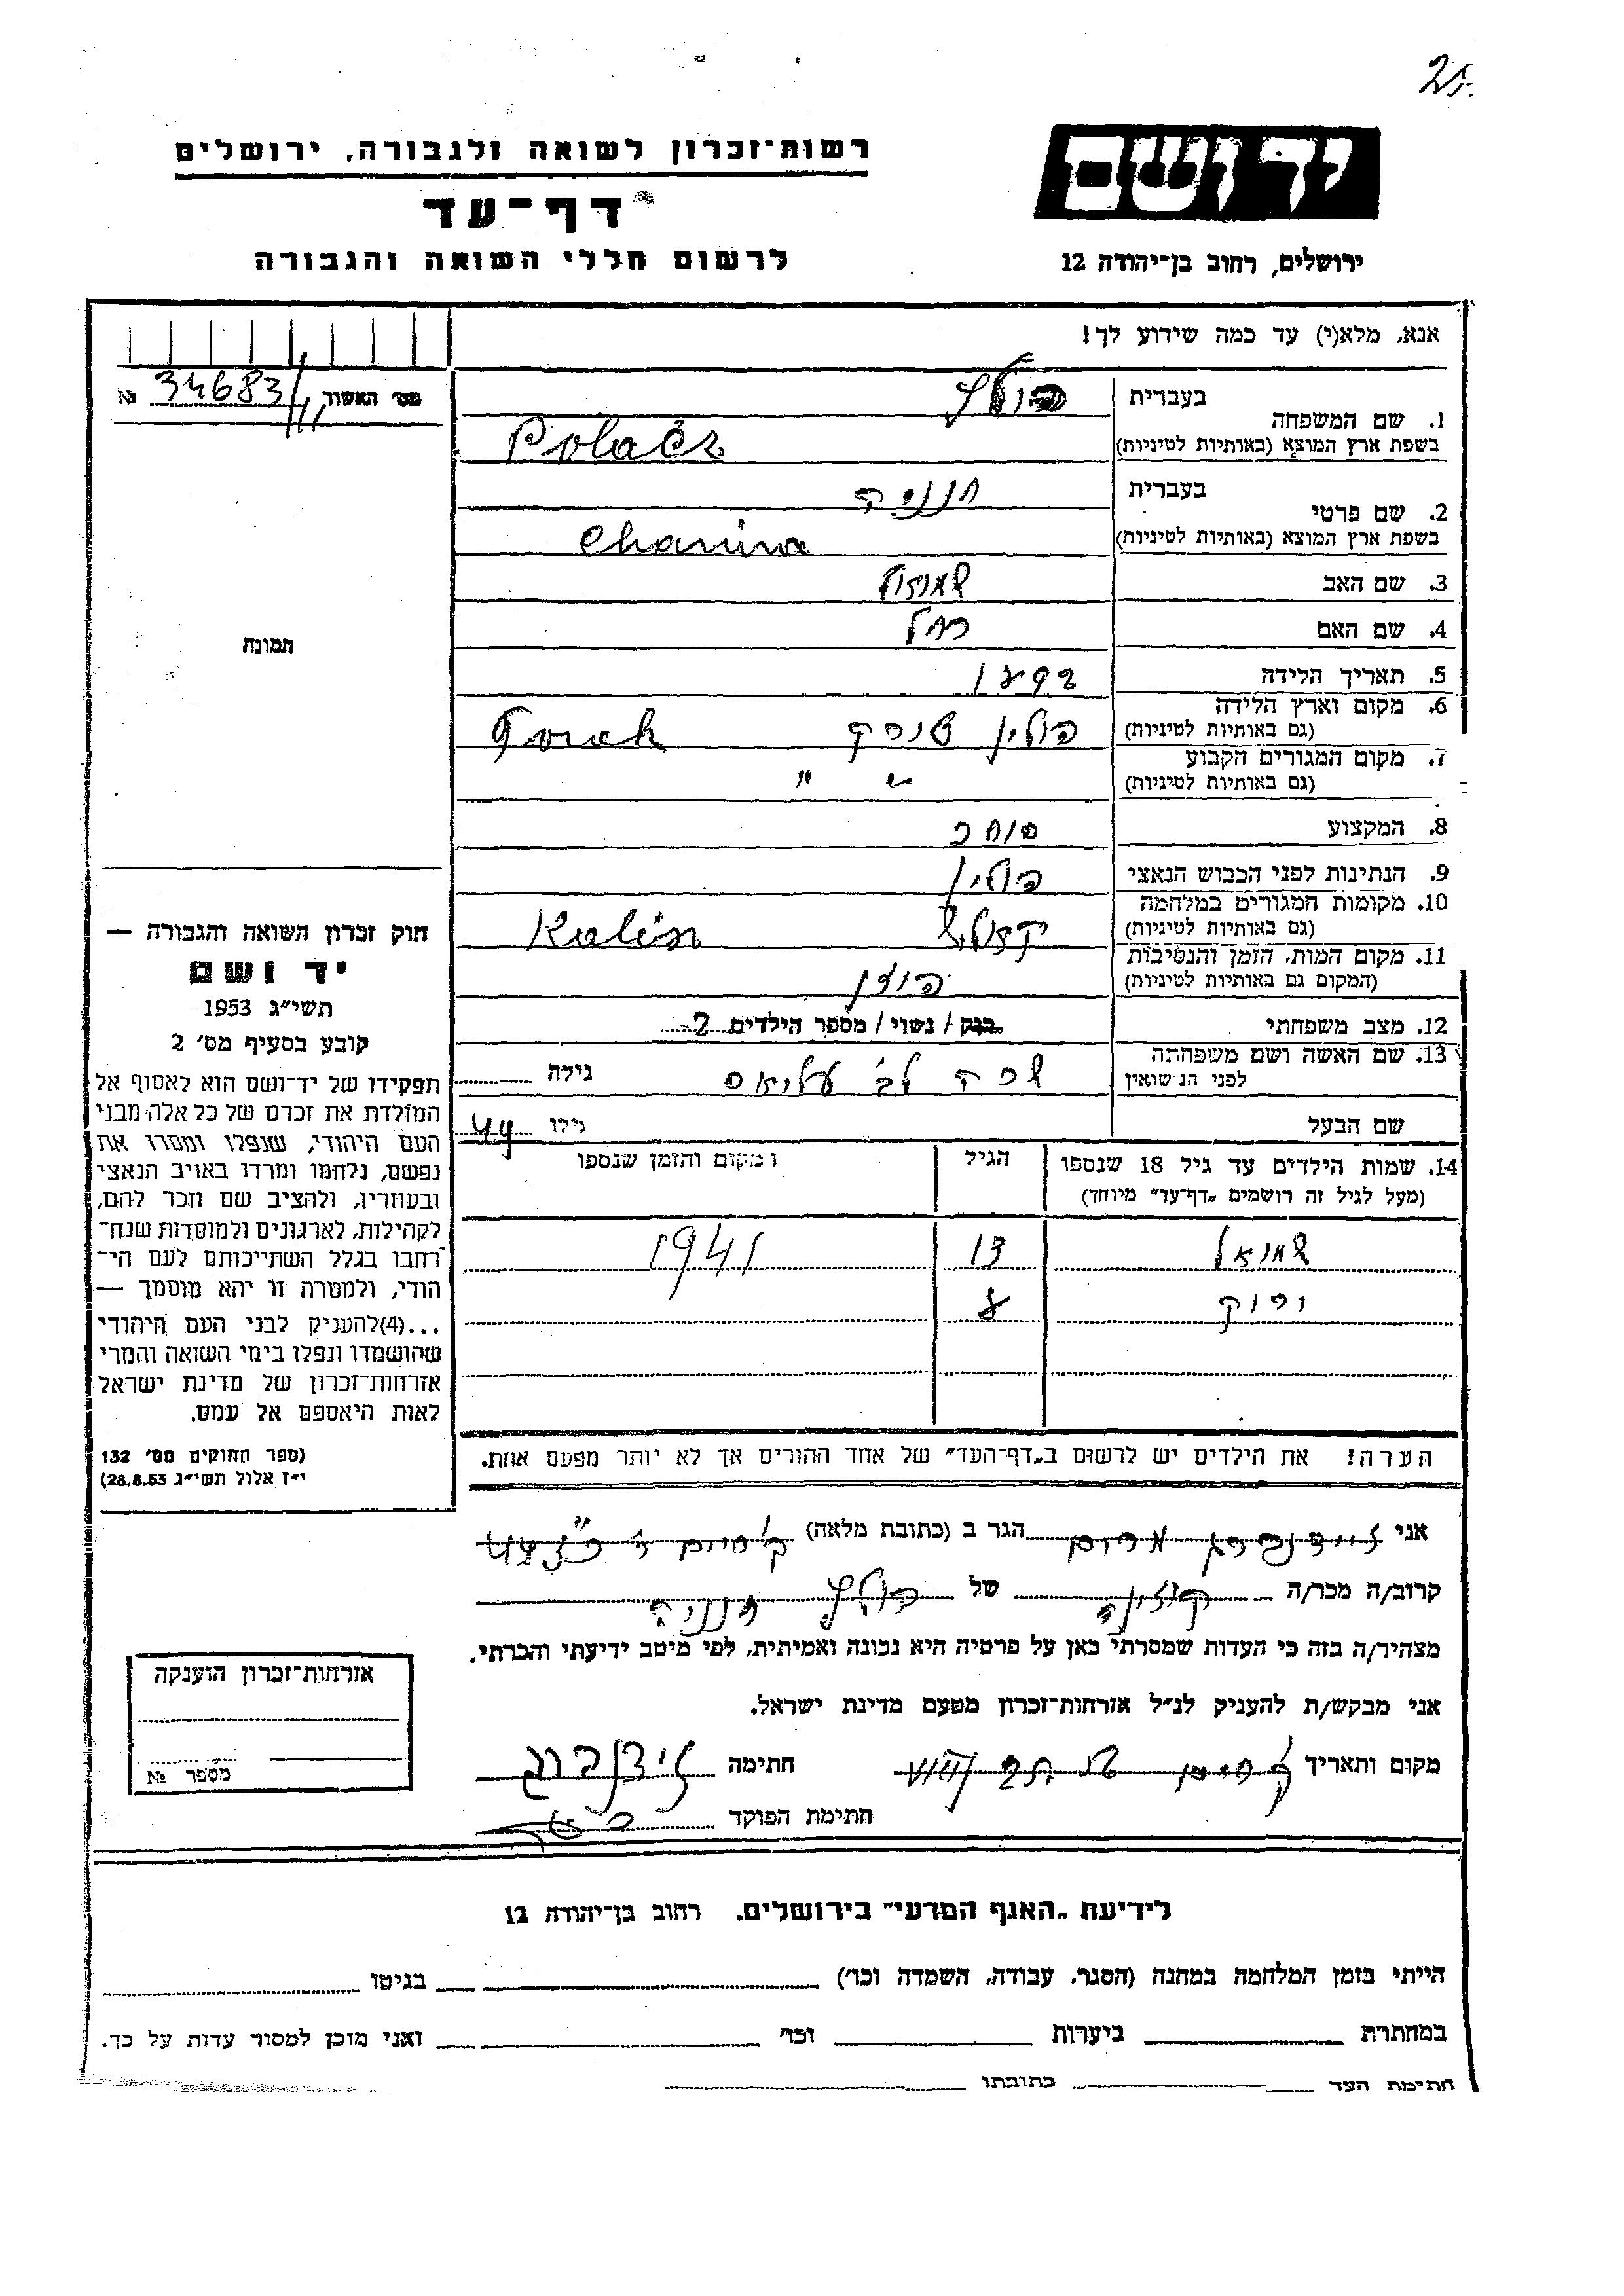 רשות־זכרון לשואה ולגבורה, ירושלים
דף־עד
לרשום חללי השואה והגבורה
יד ושם
ירושלים, רחוב בן־יהודה 12
אנא, מלא(י) עד כמה שידוע לך!
מס׳ האשור 34683 №
1. שם המשפחה
בעברית פולץ
בשפת ארץ המוצא (באותיות לטיניות)
2. שם פרטי
בעברית חנניה
בשפת ארץ המוצא (באותיות לטיניות) Chanina
3. שם האב שמואל
4. שם האם רחל
5. תאריך הלידה
6. מקום וארץ הלידה פולין טורק Turek
(גם באותיות לטיניות)
7. מקום המגורים הקבוע " "
(גם באותיות לטיניות)
8. המקצוע סוחר
9. הנתינות לפני הכבוש הנאצי פולין
10. מקומות המגורים במלחמה
(גם באותיות לטיניות)
11. מקום המות, הזמן והנסיבות
(המקום גם באותיות לטיניות)
12. מצב משפחתי רווק / נשוי / מספר הילדים 2
13. שם האשה ושם משפחתה שרה לב׳ גילה
לפני הנישואין
שם הבעל גילו 44
14. שמות הילדים עד גיל 18 שנספו הגיל ומקום והזמן שנספו
(מעל לגיל זה רושמים „דף־עד״ מיוחד)
שמואל 13 1941
תמונה
חוק זכרון השואה והגבורה —
יד ושם
תשי״ג 1953
קובע בסעיף מס׳ 2
תפקידו של יד־ושם הוא לאסוף אל
המולדת את זכרם של כל אלה מבני
העם היהודי, שנפלו ומסרו את
נפשם, נלחמו ומרדו באויב הנאצי
ובעוזריו, ולהציב שם וזכר להם,
לקהילות, לארגונים ולמוסדות שנח־
רחבו בגלל השתייכותם לעם הי־
הודי, ולמטרה זו יהא מוסמך —
...(4)להעניק לבני העם היהודי
שהושמדו ונפלו בימי השואה והמרי
אזרחות־זכרון של מדינת ישראל
לאות היאספם אל עמם.
(ספר החוקים מס׳ 132
י״ז אלול תשי״ג 28.8.53)
הערה! את הילדים יש לרשום ב„דף־העד״ של אחד ההורים אך לא יותר מפעם אחת.
אני הגר ב (כתובת מלאה)
קרוב/ה מכר/ה של פולץ חנניה
מצהיר/ה בזה כי העדות שמסרתי כאן על פרטיה היא נכונה ואמיתית, לפי מיטב ידיעתי והכרתי.
אני מבקש/ת להעניק לנ״ל אזרחות־זכרון מטעם מדינת ישראל.
מקום ותאריך חתימה
חתימת הפוקד
אזרחות־זכרון הוענקה
מספר №
לידיעת „האגף המדעי״ בירושלים. רחוב בן־יהודה 12
הייתי בזמן המלחמה במחנה (הסגר, עבודה, השמדה וכו׳) בגיטו
במחתרת ביערות וכו׳ ואני מוכן למסור עדות על כך.
חתימת העד כתובתו